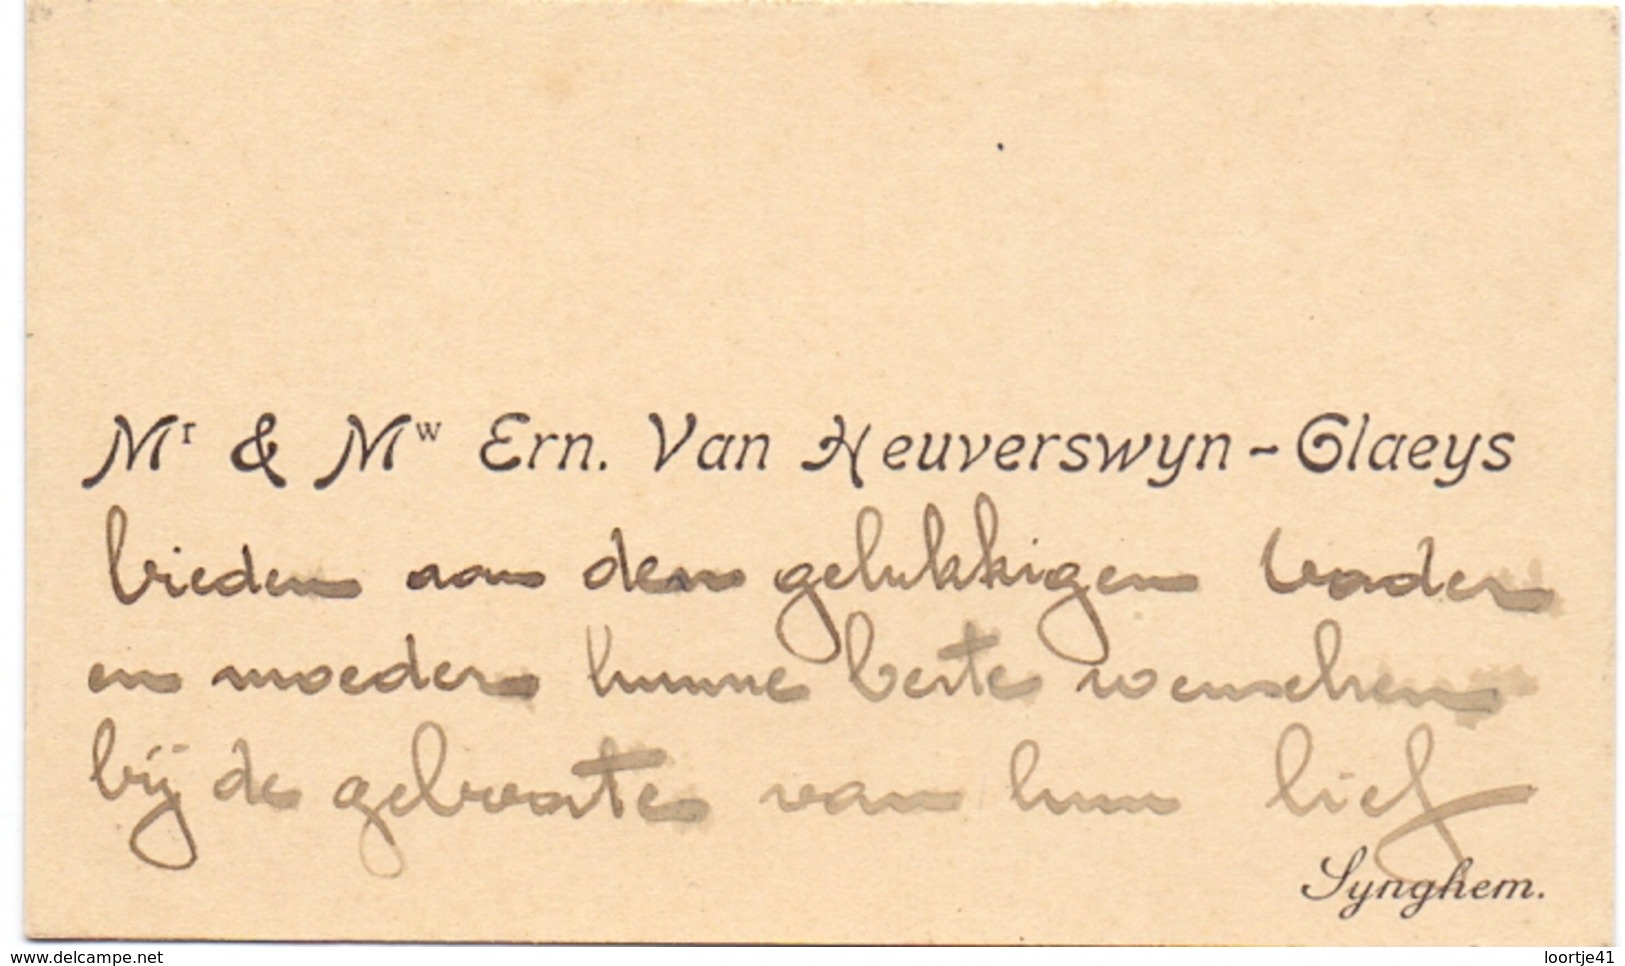 Mr & Mw Ern. Van Heuverswyn - Glaeys
bieden aan den gelukkigen vader
en moeder hunne beste wenschen
bij de geboorte van hun lief
Synghem.
www.delcampe.net
loortje41